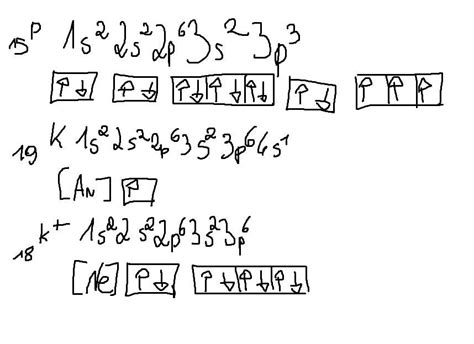 15P 1s²2s²2p⁶3s²3p³
↑↓ ↑↓ ↑↓ ↑↓ ↑↓ ↑↓ ↑ ↑ ↑
19K 1s²2s²2p⁶3s²3p⁶4s¹
[Ar] ↑
18K⁺ 1s²2s²2p⁶3s²3p⁶
[Ne] ↑↓ ↑↓ ↑↓ ↑↓